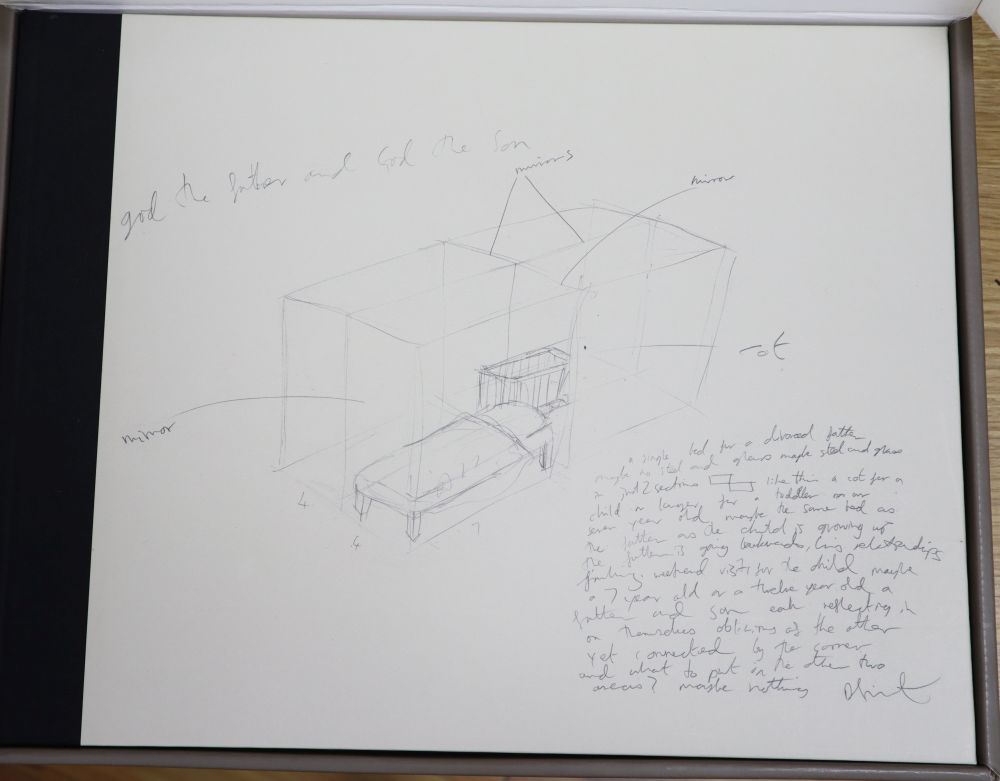 god the father and God the Son
mirrors
mirror
cot
mirror
4
4
7
a single bed for a divorced father
maybe no steel and glass maybe steel and glass
in just 2 sections like this a cot for a
child or larger for a toddler or an
seven year old maybe the same bed as
the father as the child is growing up
the father is going backwards, his relationships
finishing. weekend visits for the child maybe
a 7 year old or a twelve year old a
father and son each reflecting in
on themselves oblivious of the other
yet connected by the corner
and what to put in the other two
areas? maybe nothing DHirst